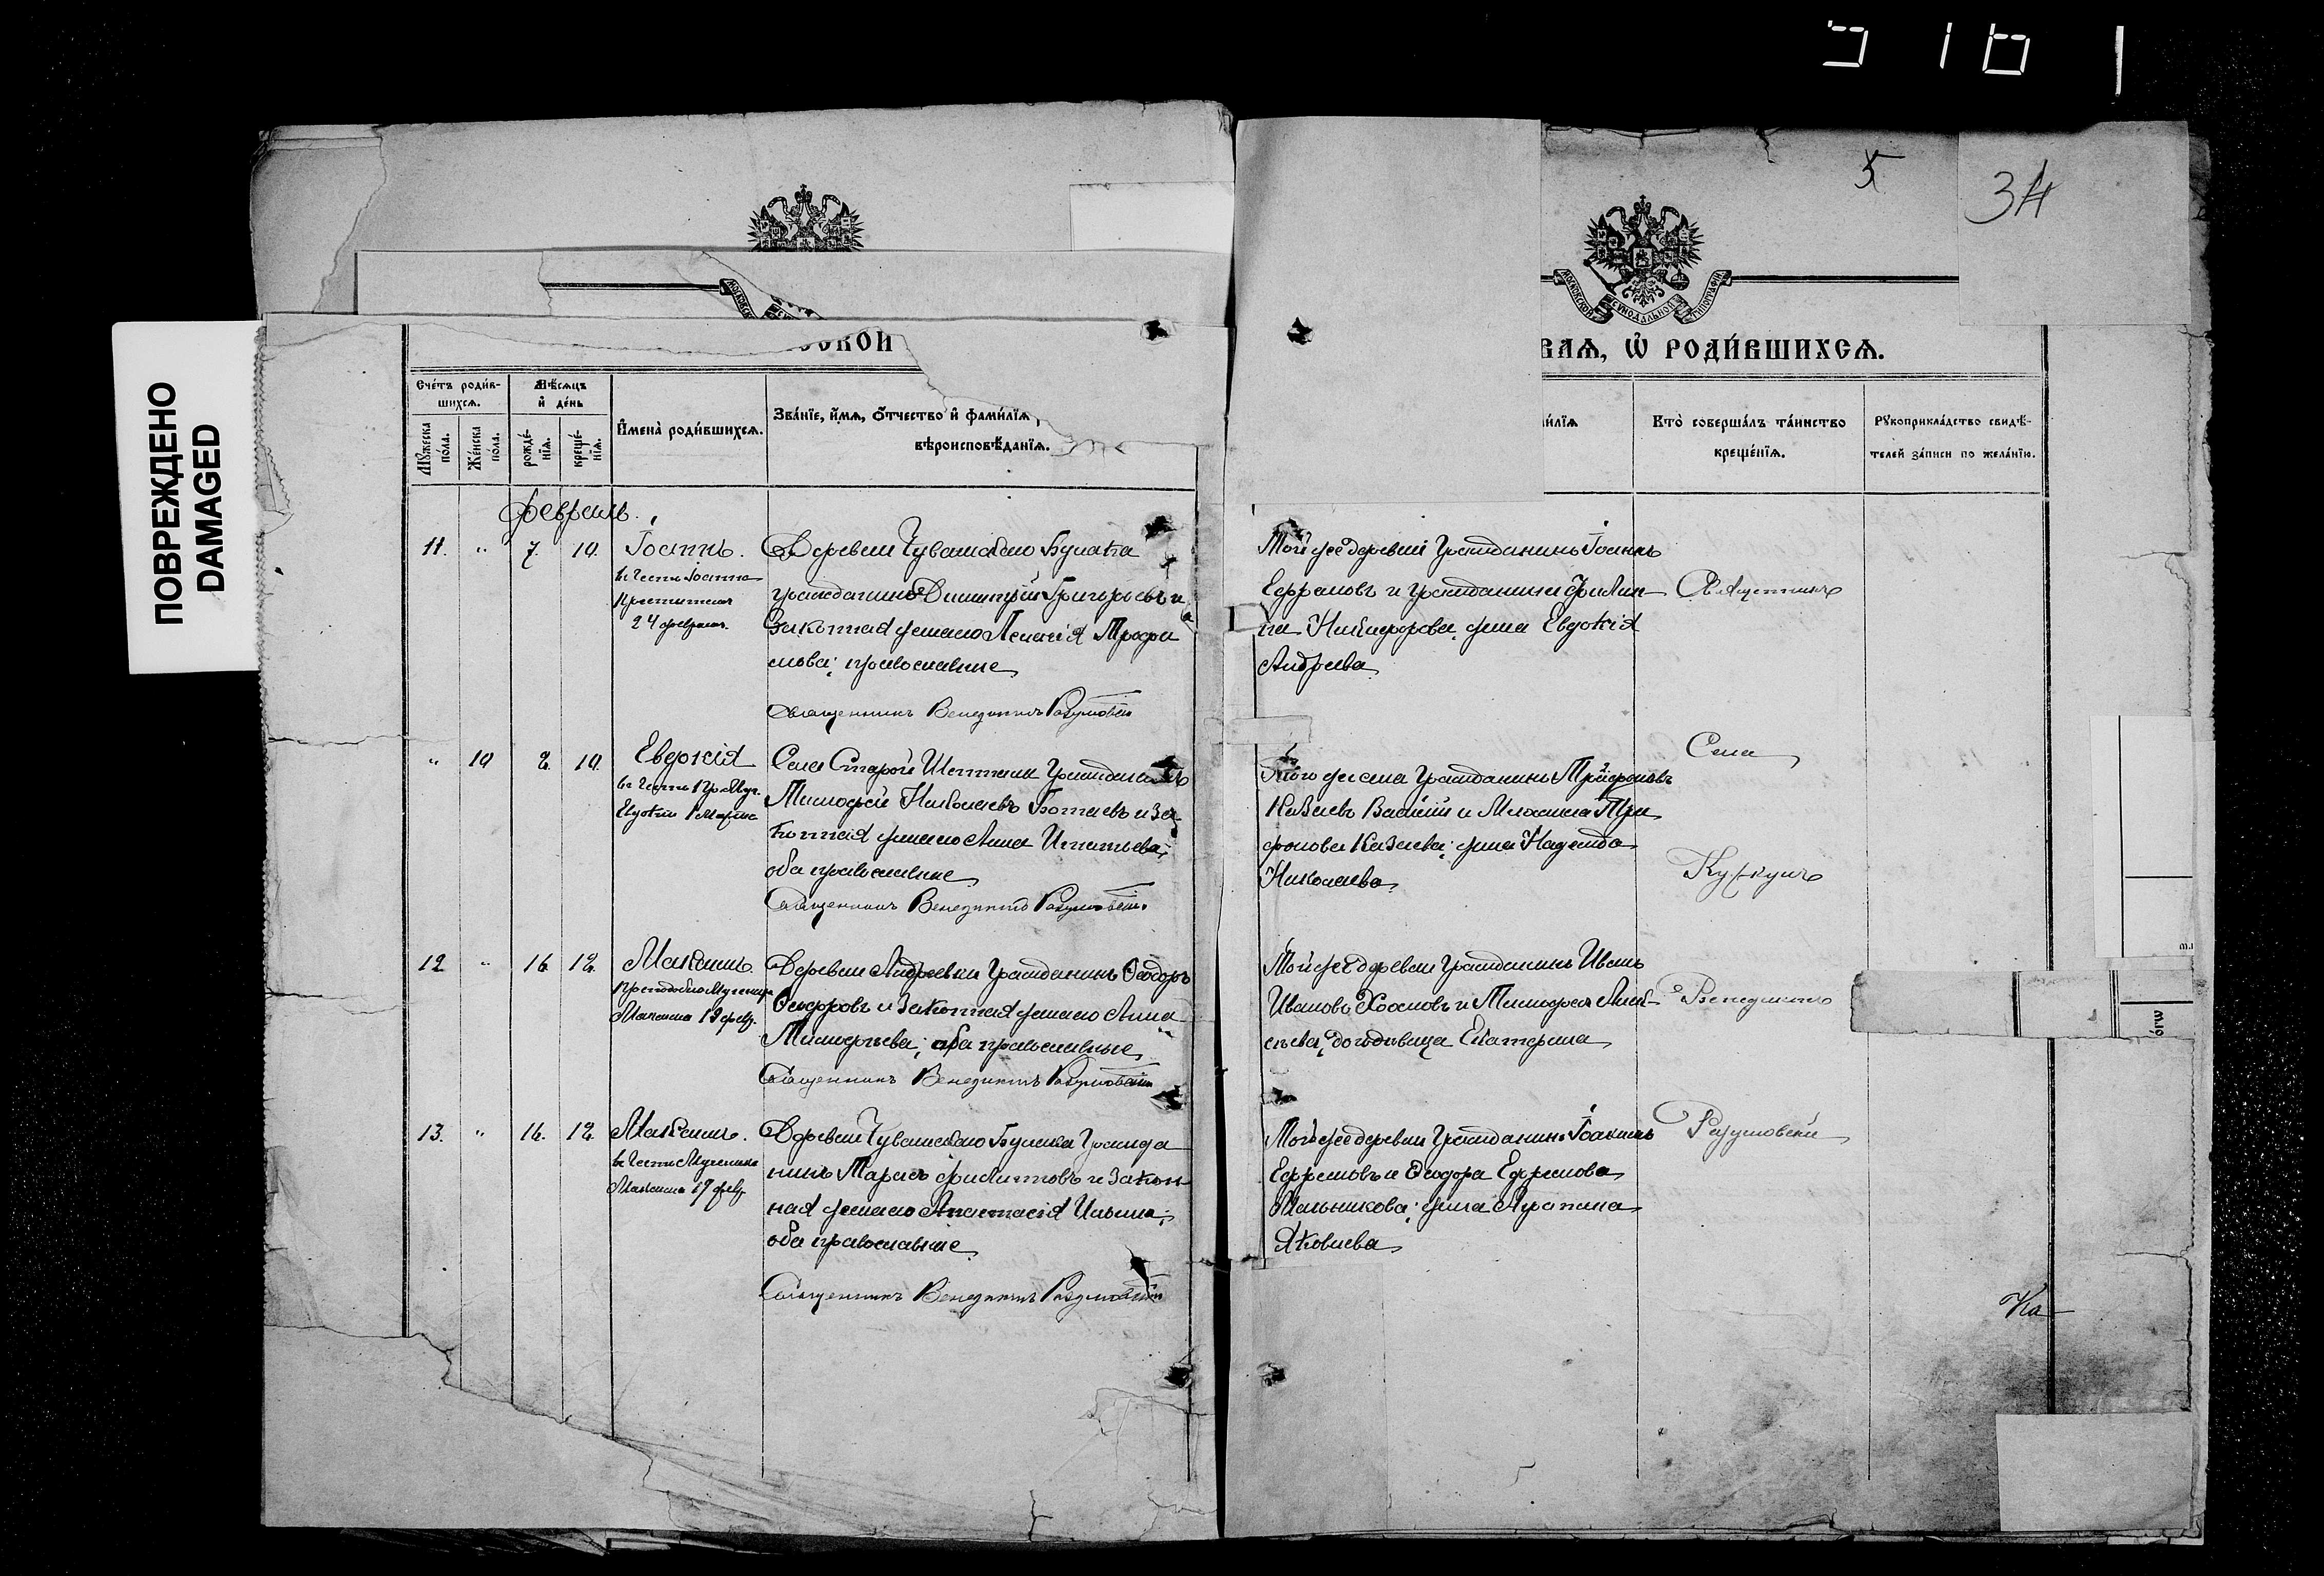 ПОВРЕЖДЕНО
DAMAGED
5
34
МОСКОВСКОЙ СѴНОДАЛЬНОЙ ТИПОГРАФІИ
РОДИ́ВШИХСѦ.
Сче́тъ роди́в-
шихсѧ.
Мѣ́сѧцъ
и҆ де́нь
Мꙋ́жеска по́ла.
Же́нска по́ла.
рожде́-нїѧ.
креще́-нїѧ.
И҆мена̀ роди́вшихсѧ.
Зва́нїе, и҆́мѧ, ѻ҆́тчество и҆ фами́лїѧ,
вѣроисповѣ́данїѧ.
Кто̀ соверша́лъ та́инство
креще́нїѧ.
Рꙋкоприкла́дство свидѣ́-
телей за́писи по жела́нїю.
февраль.
11. " 7. 10. Іоаннъ.
въ честь Іоанна
Крестителя
24 февраля.
Деревни Чувашскаго Булака
гражданинъ Димитрій Григорьевъ и
законная жена его Пелагія Трофи
мова; православные
Священникъ Венедиктъ Разумовскій
Той же деревни гражданинъ Іоаннъ
Ефремовъ и гражданина Филип
па Никифорова жена Евдокія
Андреева
" 10 2. 10. Евдокія
въ честь Пр. Муч.
Евдокіи 1 Марта
Села Старой гражданинъ
Тимофей Николаевъ и за
конная жена его Анна Игнатьева;
оба православные
Священникъ Венедиктъ Разумовскій.
Села
Того же села гражданинъ Трифоновъ
Василій и
Надежда
Николаева
12 " 16 12. Максимъ.
Преподобномученика
Максима 19 февр.
Деревни Андреевки гражданинъ Ѳеодоръ
Ѳеодоровъ и законная жена его Анна
Тимофеева; оба православные
Священникъ Венедиктъ Разумовскій
Той же деревни гражданинъ Иванъ
Ивановъ и Тимофея Алек-
сѣева Екатерина
Венедиктъ
13. " 16. 12. Максимъ.
въ честь Мученика
Максима 19 февр.
Деревни Чувашскаго Булака гражда
нинъ Тарасъ Филипповъ и закон
ная жена его Анастасія Ильина;
оба православные
Священникъ Венедиктъ Разумовскій
Той же деревни гражданинъ Іоакимъ
Ефремовъ и Ѳеодора Ефремова
Мельникова; жена Агрипина
Яковлева
Разумовскій
Ка